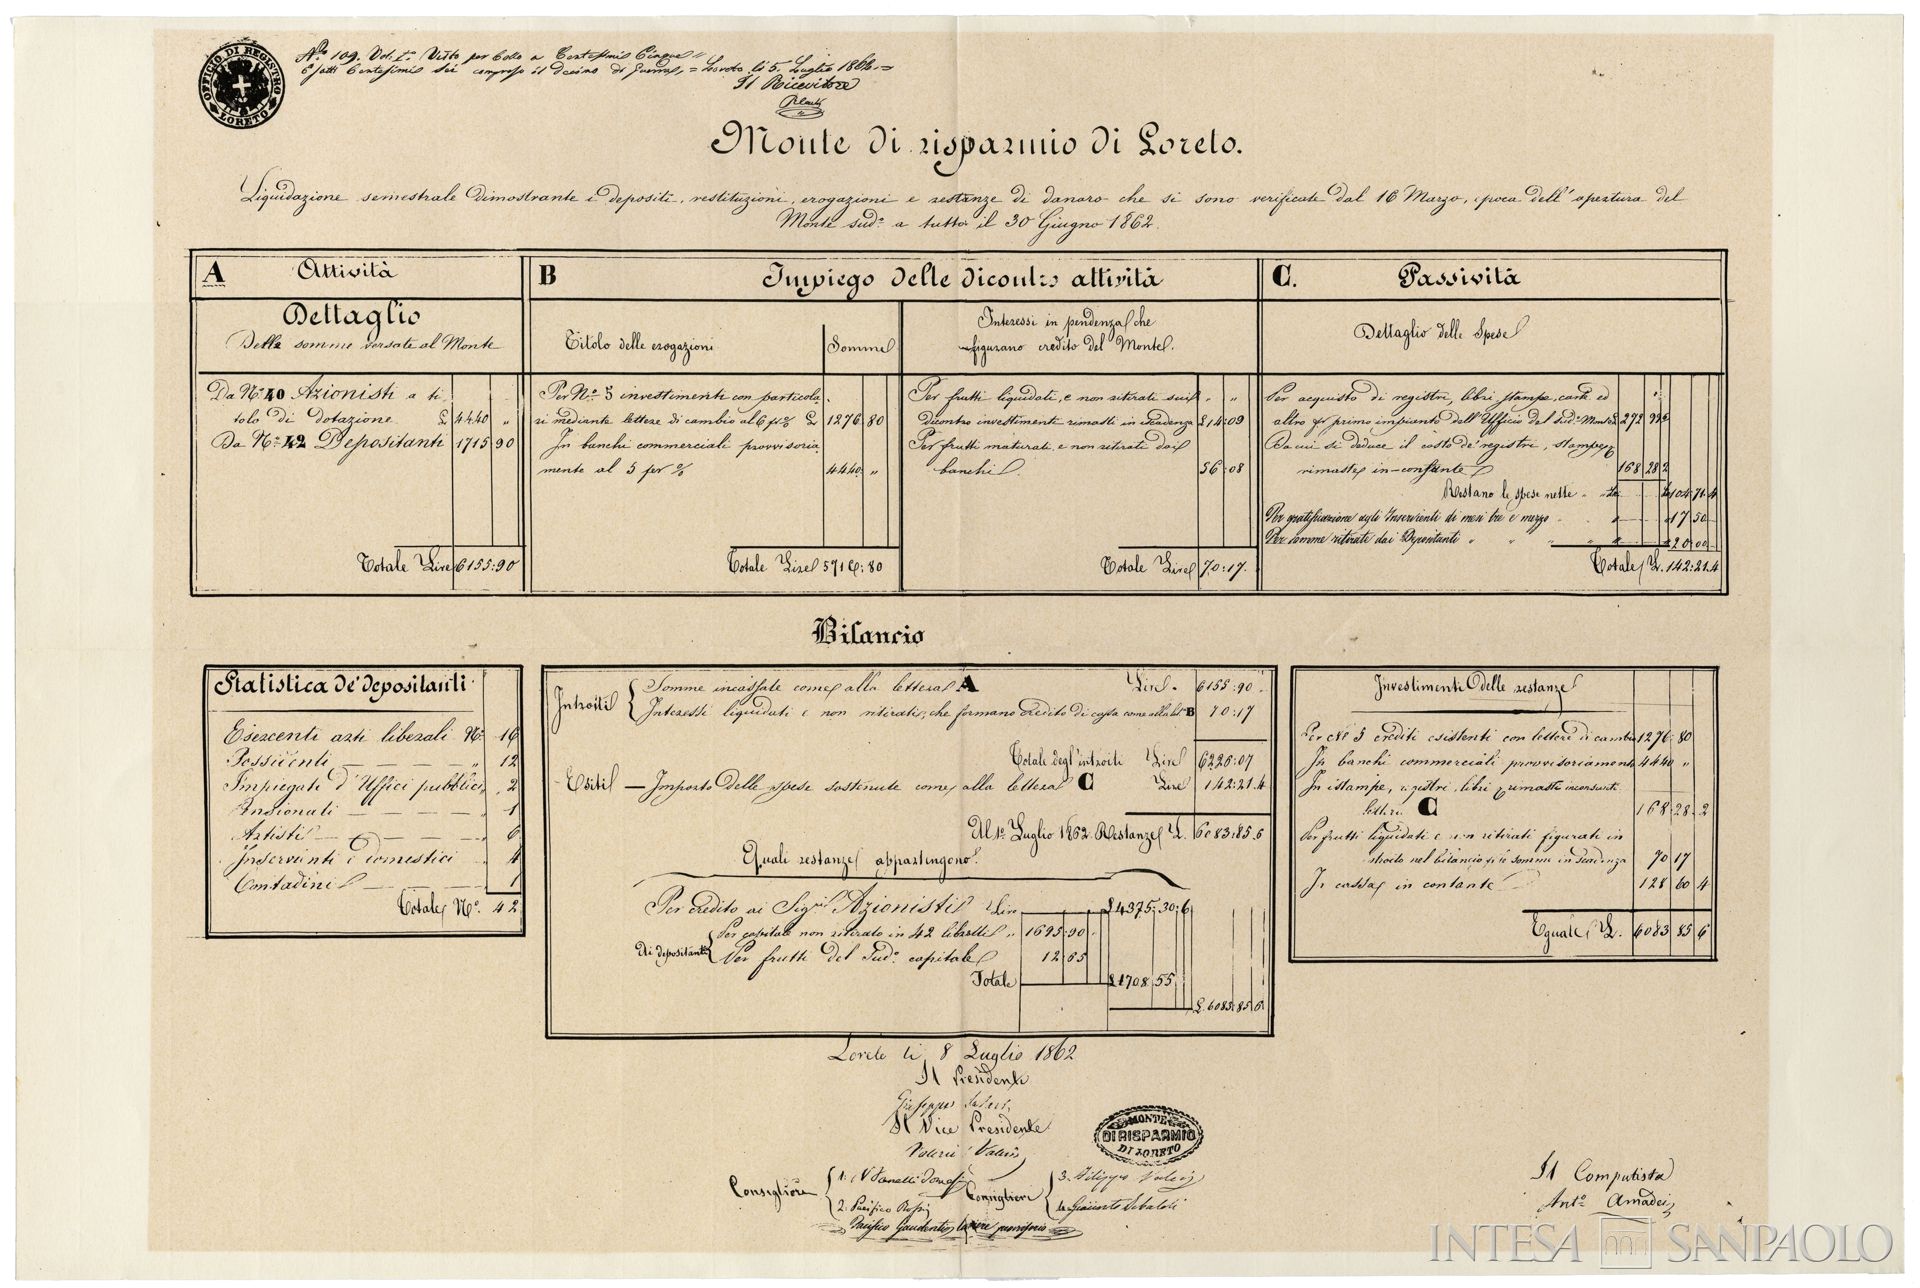 OFFICIO DI REGISTRO
LORETO
No. 109. Vol. 1o. Visto per bollo a Centesimi Cinque
Esatti Centesimi Sei compreso il decimo di Guerra, = Loreto li 5. Luglio 1862. =
Il Ricevitore
Monte di risparmio di Loreto.
Liquidazione semestrale dimostrante i depositi, restituzioni, erogazioni e restanze di danaro che si sono verificate dal 16 Marzo, epoca dell'apertura del
Monte sudo. a tutto il 30 Giugno 1862.
A Attività
Dettaglio
Delle somme versate al Monte
Da No. 40 Azionisti a ti
tolo di dotazione £ 4440 "
Da No. 42 Depositanti 1715 90
Totale Lire 6155:90
B Impiego delle dicontro attività
Titolo delle erogazioni
Somme
Per No. 5 investimenti con particola-
ri mediante lettere di cambio al 6 p% £ 1276 80
In banchi commerciali provvisoria-
mente al 5 per % 4440 "
Totale Lire 5716:80
Interessi in pendenza che
figurano credito del Monte.
Per frutti liquidati, e non ritirati sui " "
dicontro investimenti rimasti in scadenza £ 14:09
Per frutti maturati, e non ritirati dai
banchi 56:08
Totale Lire 70:17.
C. Passività
Dettaglio delle Spese
Per acquisto di registri, libri stampe, carte ed
altro per primo impianto dell'Ufficio del sudo. Monte £ 272 99 6
Da cui si deduce il costo de' registri, stampe
rimaste in contante 168 28 2
Restano le spese nette £ 104:71.4
Per gratificazione agli Inservienti di mesi tre e mezzo " 17 50
Per somme ritirate dai Depositanti " 20:00
Totale £. 142:21.4
Bilancio
Statistica de' depositanti
Esercenti arti liberali No. 16
Possidenti " 12
Impiegati d'Uffici pubblici " 2
Pensionati 1
Artisti 6
Inservienti e domestici 4
Contadini 1
Totale No. 42
Introiti
Somme incassate come alla lettera A Lire 6155:90
Interessi liquidati e non ritirati, che formano credito di cassa come alla let. B 70:17
Totale degl'introiti Lire 6226:07
Esiti — Importo delle spese sostenute come alla lettera C Lire 142:21.4
Al 1o. Luglio 1862 Restanze £. 6083:85.6
Quali restanze appartengono:
Per credito ai Sigri. Azionisti Lire £ 4375:30:6
Ai depositanti
Per capitale non ritirato in 42 libretti " 1695:90
Per frutti del Sudo. capitale 12 65
Totale £ 1708 55
£. 6083:85.6
Investimenti delle restanze
Per No 5 crediti esistenti con lettere di cambio 1276 80
In banchi commerciali provvisoriamente 4440 "
In istampe, registri, libri rimasti
lettera C 168:28.2
Per frutti liquidati e non ritirati figurati in
introito nel bilancio 70 17
In cassa in contante 128 60 4
Eguale £. 6083 85 6
Loreto li 8 Luglio 1862
Il Presidente
Giuseppe
Il Vice Presidente
Valerio Valeri
Consigliere
1.
2. Pacifico Rossi
Consiglieri
3. Filippo
4. Giacinto Sebaldi
Pacifico Gaudenti
MONTE
DI RISPARMIO
DI LORETO
Il Computista
Anto. Amadei
INTESA SANPAOLO